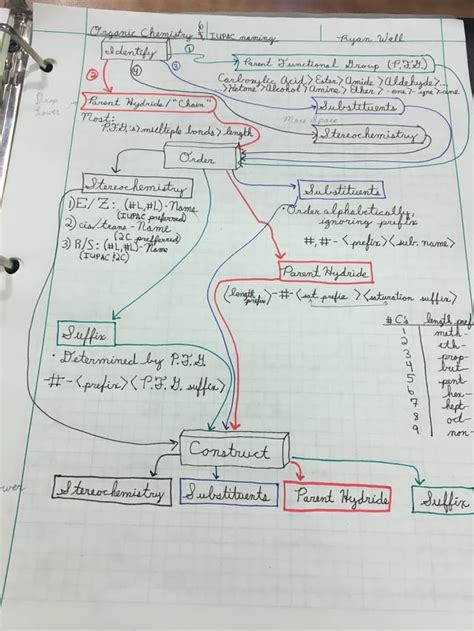 Organic Chemistry & IUPAC naming
Ryan Well
Identify
①
Parent Functional Group (P.F.G.)
②
④
③
Carboxylic Acid > Ester > Amide > Aldehyde > ...
... > Ketone > Alcohol > Amine > Ether > -one > -yne > -ane
Drop
Lower
Parent Hydride/"Chain"
Most:
P.F.G.'s > multiple bonds > length
Substituents
More Space
Stereochemistry
Order
Stereochemistry
1) E/Z: (#L, #L)-Name
(IUPAC preferred)
2) cis/trans-Name
(2C preferred)
3) R/S: (#L, #L)-Name
(IUPAC/2C)
Substituents
• Order alphabetically,
ignoring prefix
#,#-<prefix><sub. name>
Parent Hydride
<length prefix>-#-<sat. prefix><saturation suffix>
Suffix
• Determined by P.F.G
-#-<prefix><P.F.G. suffix>
# C's length pref
1 meth-
2 eth-
3 prop-
4 but-
5 pent-
6 hex-
7 hept-
8 oct-
9 non-
Construct
Stereochemistry
Substituents
Parent Hydride
Suffix